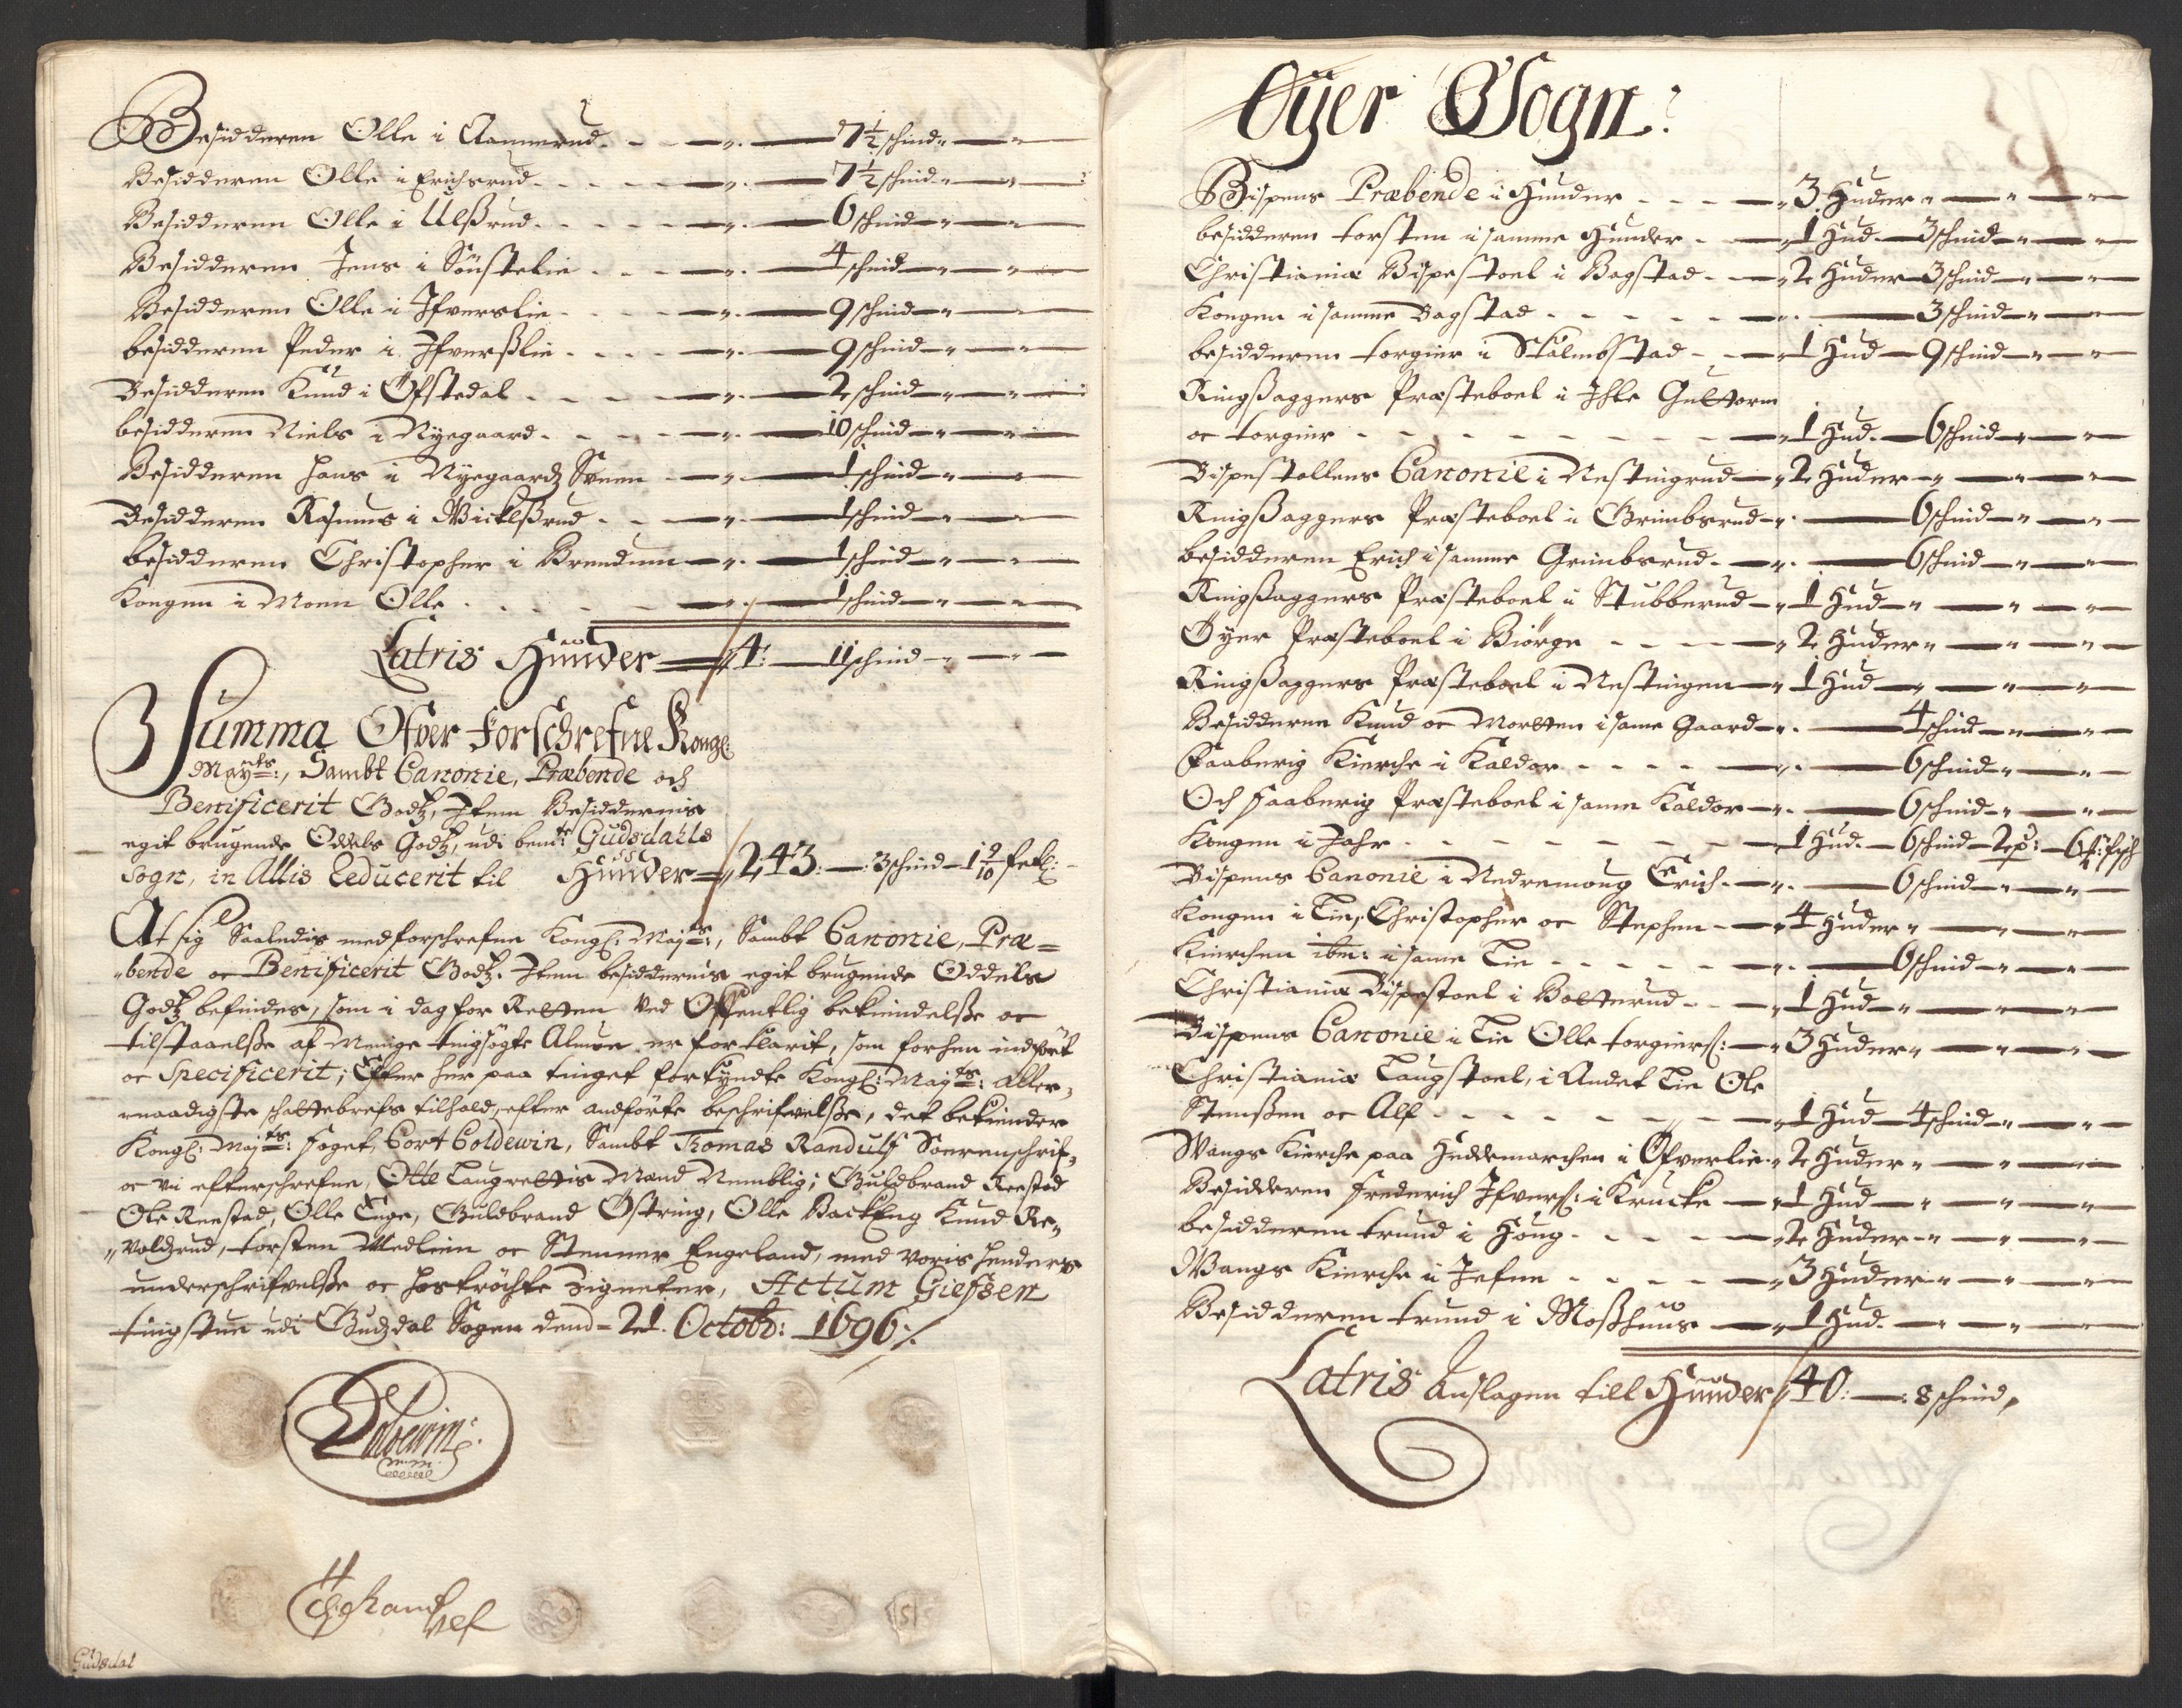 Besidderen Olle i Aannerud - - - 7½ schind
Besidderen Olle i Erichsrud - - - 7½ schind
Besidderen Olle i Ulßrud - - - 6 schind
Besidderen Jens i Sönstelie - - - 4 schind
Besidderen Olle i Ifverslie - - - 9 schind
besidderen Peder i Ifverßlie - - - 9 schind
Besidderen Knud i Öfstedal - - - 2 schind
besidderen Niels i Nyegaard - - - 10 schind
Besidderen Hans i Nyegaardz Sveen - - - 1 schind
Besidderen Rasmus i Wicklßrud - - - 1 schind
besidderen Christopher i Brendum - - - 1 schind
Kongen i Moen Olle - - - 1 schind
Latris Hünder 4: 11 schind
Summa Ofver Forschrefne Kongl:
Mayts:, Sambt Canonie, Præbende och
Benificerit Godtz, Item Besiddernis
egit brugende Oddels Godtz, udi bemte Gudsdahls
Sogn, in Allis Reducerit til Hünder 243: 3 schind 1 9/10 fetl:
At sig Saaledis medforschrefne Kongl: Mayts:, Sambt Canonie, Præ=
bende oc Benificerit Godtz. Item besiddernis egit brugende Oddels
Godtz befindes, som i dag for Retten ved Offentlig bekiendelße oc
tilstaaelße af Menige tingsögte Almue er forklarit, som forhen indfört
oc Specificerit; Efter her paa tinget forkyndte Kongl: Mayts: Aller=
naadigste schattebrefs tilhold, efter andförte beschrifvelße, det bekiender
Kongl: Mayts: foget, Cort Coldewin, Sambt Thomas Randulf Sorenschrif=
oc vi efterschrefne, Otte Laugrettis Mænd Nemblig; Guldbrand Reestad
Ole Reestad, Olle Enge, Guldbrand Östring, Olle BackEng Knud Re=
voldzrud, torsten Medlien oc Stenner Engeland, med voris henders
underschrifvelße oc hoströchte Zigneter, Actum Giefsen
tingstue udi Gudzdal Sogen dend 21. Octobr: 1696
Coldewin:
mm
ThRandulf
Gudsdal
Öÿer Sogn:
Bispens Præbende i Hunder - - - 3 Huder
besidderen torsten i samme Hunder - 1 Hud 3 schind
Christianiæ Bispestoel i Bagstad - - 2 Huder 3 schind
Kongen i samme Bagstad - - - 3 schind
besidderen torgier i Skalmbstad - - 1 Hud 9 schind
Ringßaggers Præsteboel i Ihle Guttorm
oc torgier - - - 1 Hud 6 schind
Bispestollens Canonie i Nestingrud 2 Huder
Ringßaggers Præsteboel i Grimbsrud 6 schind
besidderen Erich i samme Grimbsrud 6 schind
Ringßaggers Præsteboel i Stubberud 1 Hud
Öyer Præsteboel i Biörge - - - 2 Huder
Ringßaggers Præsteboel i Nestingen 1 Hud
Besidderen Knud oc Morten i same Gaard 4 schind
Faaberig Kierche i Kaldor - - - 6 schind
Och Faaberig Præsteboel i same Kaldor 6 schind
Kongen i Jahr - - - 1 Hud 6 schind 2 p: 6 fisch
Bispens Canonie i Nedremoug Erich 6 schind
Kongen i Lie, Christopher oc Stephen 4 Huder
Kierchen ibm: i same Lie - - - 6 schind
Christianiæ Bispestoel i Botterud - - 1 Hud
Bispens Canonie i Lie Olle torgiers: 3 Huder
Christianiæ Laugstoel, i Andet Lie Ole
Stenßen oc Alf - - - 1 Hud 4 schind
Wangs Kierche paa Heddemarchen i Öfverlie 2 Huder
Besidderen Frederich Ifvers: i Krucke 1 Hud
besidderen trund i Houg - - - 2 Huder
Wangs Kierche i Jefne - - - 3 Huder
Besidderen trund i Moßhuus 1 Hud
Latris Anslagen till Hünder 40: 8 schind